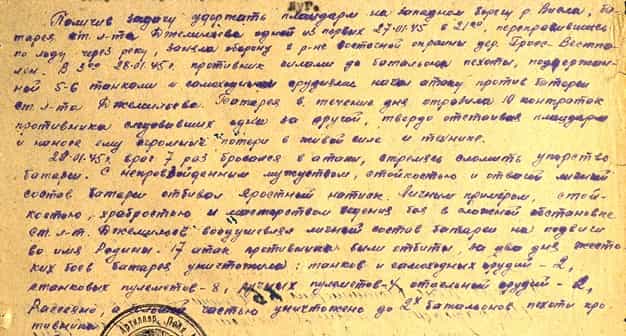 Получив задачу удержать плацдарм на западном берегу р. Висла, ба-
тарея ст. л-та Джемилёва одной из первых 27.01.45 в 21°°, переправившись
по льду через реку, заняла оборону в р-не восточной окраины дер. Гросс-Вестпа-
лен. В 3°° 28.01.45г. противник силами до батальона пехоты, поддержан-
ной 5-6 танками и самоходными орудиями начал атаку против батареи
ст. л-та Джемилёва. Батарея в течение дня отразила 10 контратак
противника следовавших одна за другой, твердо отстаивая плацдарм
и нанося ему огромные потери в живой силе и технике.
29.01.45г. враг 7 раз бросался в атаки, стремясь сломить упорство
батареи. С непревзойденным мужеством, стойкостью и отвагой личный
состав батареи отбивал яростный натиск. Личным примером, стой-
костью, храбростью и мастерством ведения боя в сложной обстановке
ст. л-т. Джемилёв воодушевлял личный состав батареи на подвиги
во имя Родины. 17 атак противника были отбиты, за два дня жесто-
ких боев батарея уничтожила: танков и самоходных орудий - 2,
станковых пулеметов - 8, ручных пулеметов - 4, отдельных орудий - 2,
Рассеяно, а большей частью уничтожено до 2х батальонов пехоты про-
тивника
Артиллер. Полк